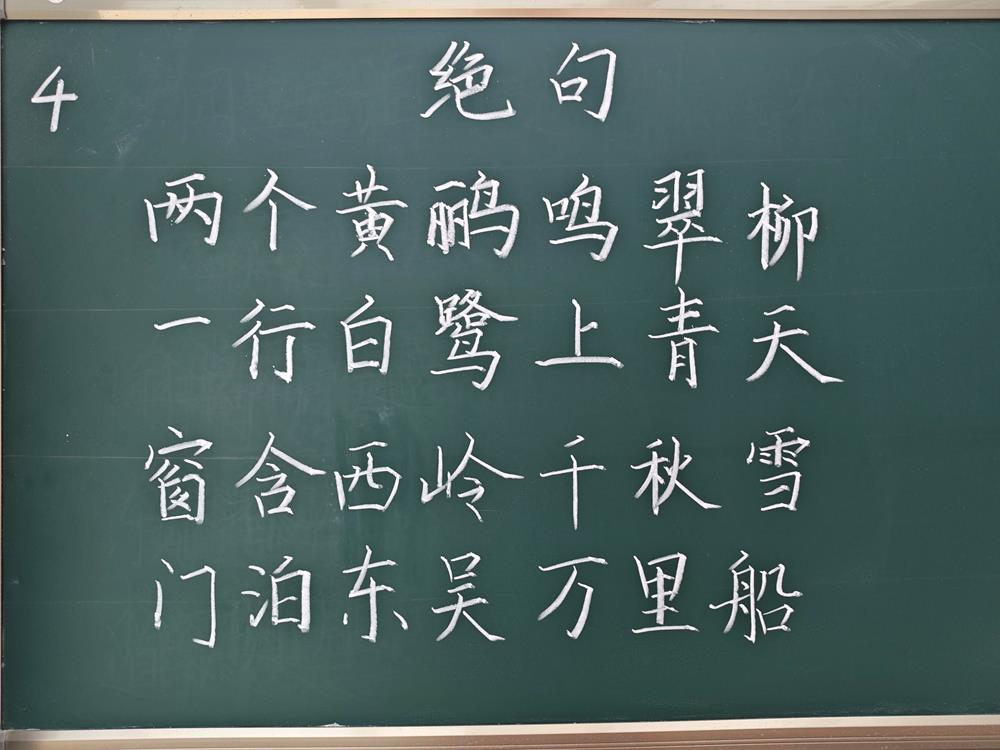 4
绝句
两个黄鹂鸣翠柳
一行白鹭上青天
窗含西岭千秋雪
门泊东吴万里船